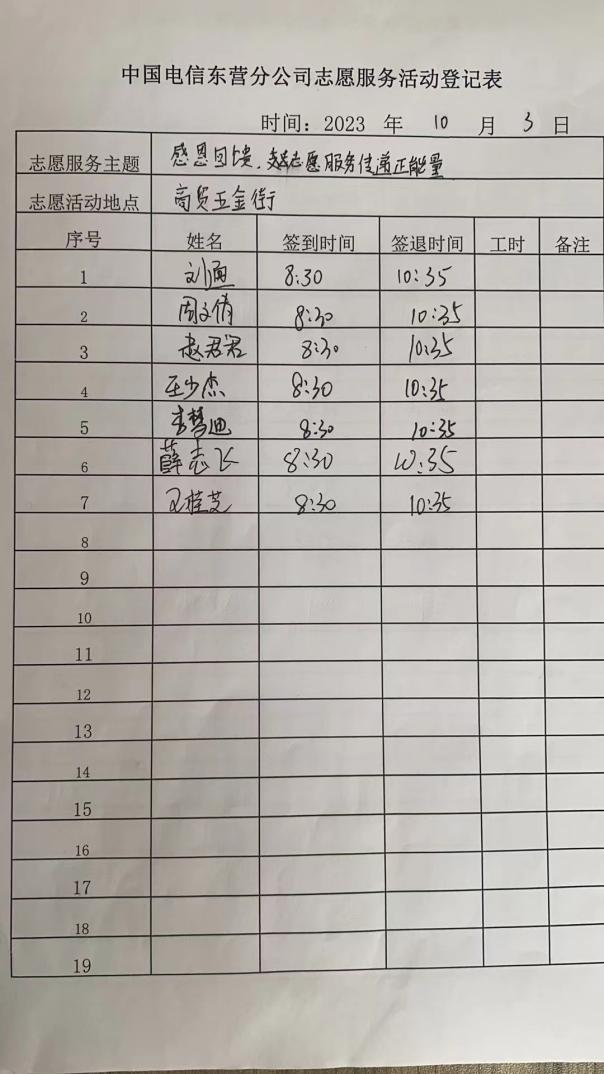 中国电信东营分公司志愿服务活动登记表
时间：2023 年 10 月 3 日
志愿服务主题 感恩回馈、志愿服务传递正能量
志愿活动地点 商贸五金街
序号 姓名 签到时间 签退时间 工时 备注
1 刘通 8:30 10:35
2 周文倩 8:30 10:35
3 赵君君 8:30 10:35
4 王少杰 8:30 10:35
5 李梦迪 8:30 10:35
6 薛志飞 8:30 10:35
7 王桂芝 8:30 10:35
8
9
10
11
12
13
14
15
16
17
18
19